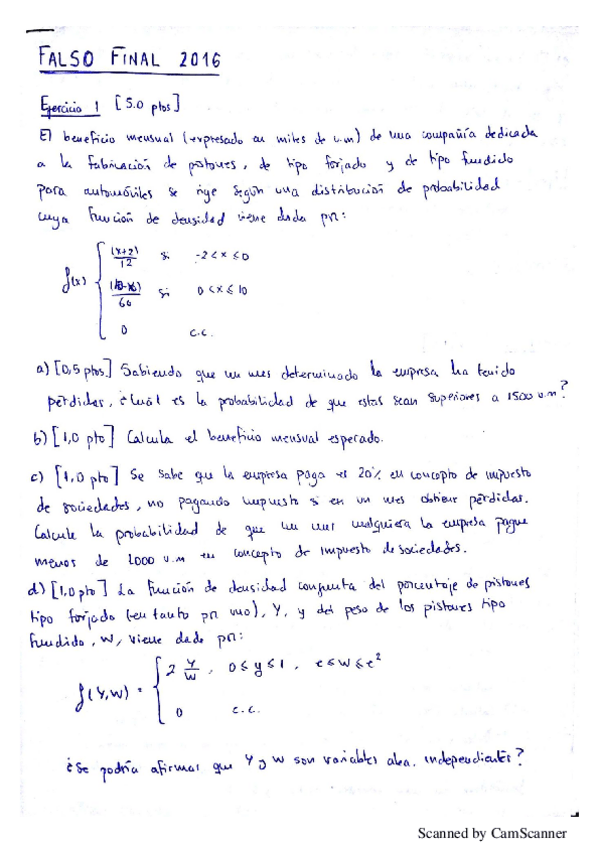 FALSO FINAL 2016
Ejercicio 1 [5.0 ptos]
El beneficio mensual (expresado en miles de u.m) de una compañía dedicada
a la fabricación de pistones, de tipo forjado y de tipo fundido
para automóviles se rige según una distribución de probabilidad
cuya función de densidad viene dada por:
f(x) { (x+2)/12 si -2<x≤0
(10-x)/60 si 0<x≤10
0 c.c.
a) [0,5 ptos.] Sabiendo que un mes determinado la empresa ha tenido
pérdidas, ¿cuál es la probabilidad de que estas sean superiores a 1500 u.m?
b) [1,0 pto] Calcula el beneficio mensual esperado.
c) [1,0 pto] Se sabe que la empresa paga el 20% en concepto de impuesto
de sociedades, no pagando impuesto si en un mes obtiene pérdidas.
Calcule la probabilidad de que un mes cualquiera la empresa pague
menos de 1000 u.m en concepto de impuesto de sociedades.
d) [1,0 pto] La función de densidad conjunta del porcentaje de pistones
tipo forjado (en tanto por uno), Y, y del peso de los pistones tipo
fundido, W, viene dado por:
f(Y,W) = { 2 y/w , 0≤y≤1, e≤w≤e²
0 c.c.
¿Se podría afirmar que Y y W son variables alea. independientes?
Scanned by CamScanner